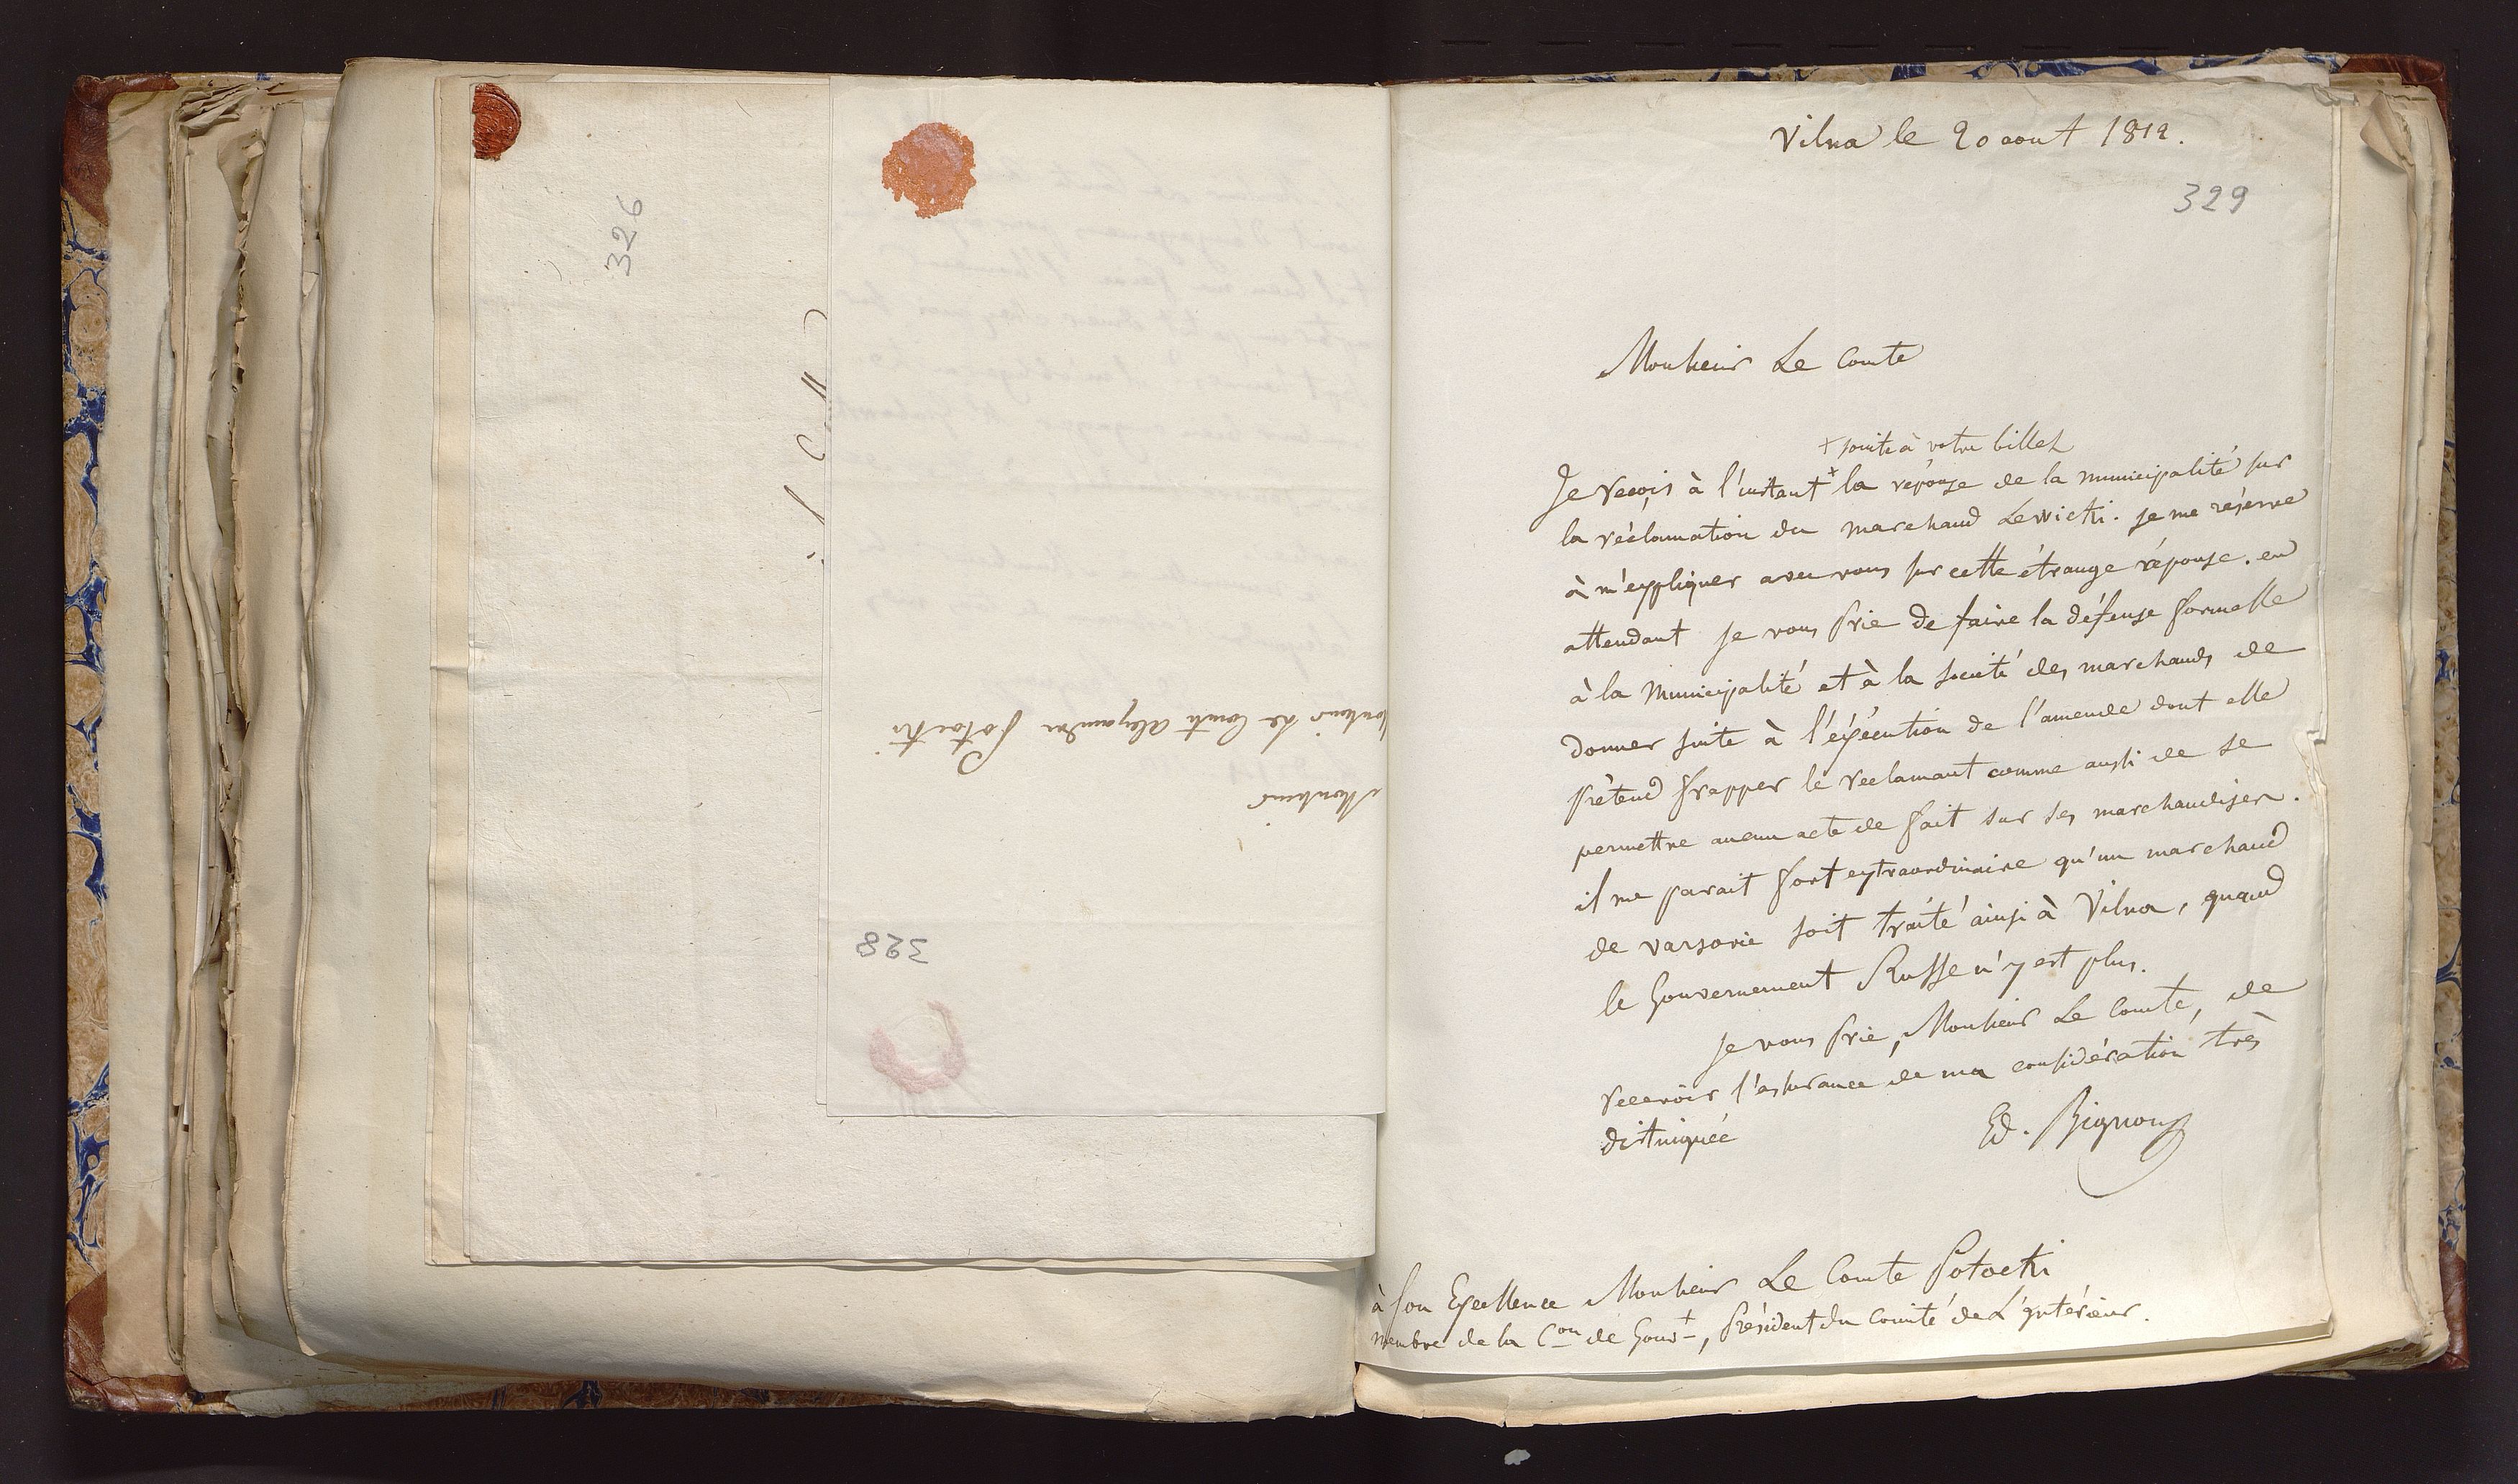 326
Monsieur
Monsieur Le Comte Alexandre Potocki
328
Vilna le 20 aout 1812.
329
Monsieur Le Comte
+ jointe à votre billet
Je reçois à l'instant + la réponse de la municipalité sur
la réclamation du marchand Lewicki. je me réserve
à m'expliquer avec vous sur cette étrange réponse. en
attendant je vous prie de faire la défense formelle
à la Municipalité et à la société des marchands de
donner suite à l'éxécution de l'amende dont elle
prétend frapper le réclamant comme aussi de se
permettre aucun acte de fait sur ses marchandises.
il me parait fort extraordinaire qu'un marchand
de varsovie soit traité ainsi à Vilna, quand
le Gouvernement Russe n'y est plus.
Je vous prie, Monsieur Le Comte, de
recevoir l'assurance de ma considération très
distinguée
Ed. Bignon
à Son Excellence Monsieur Le Comte Potocki
membre de la Con de Gouvt, Président du Comité de L'Intérieur.